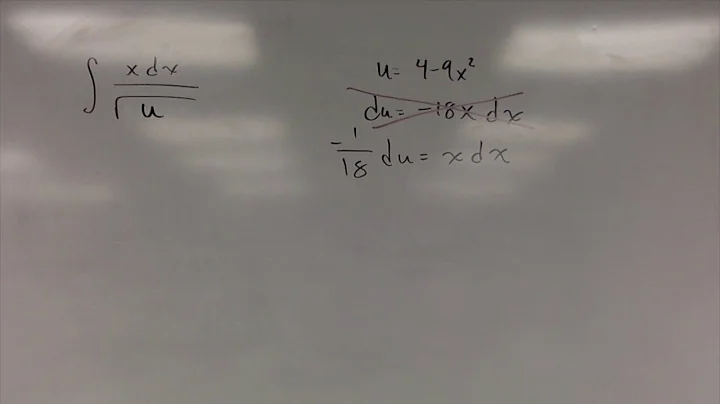 ∫ x dx / √u
u = 4-9x²
du = -18x dx
-1/18 du = x dx